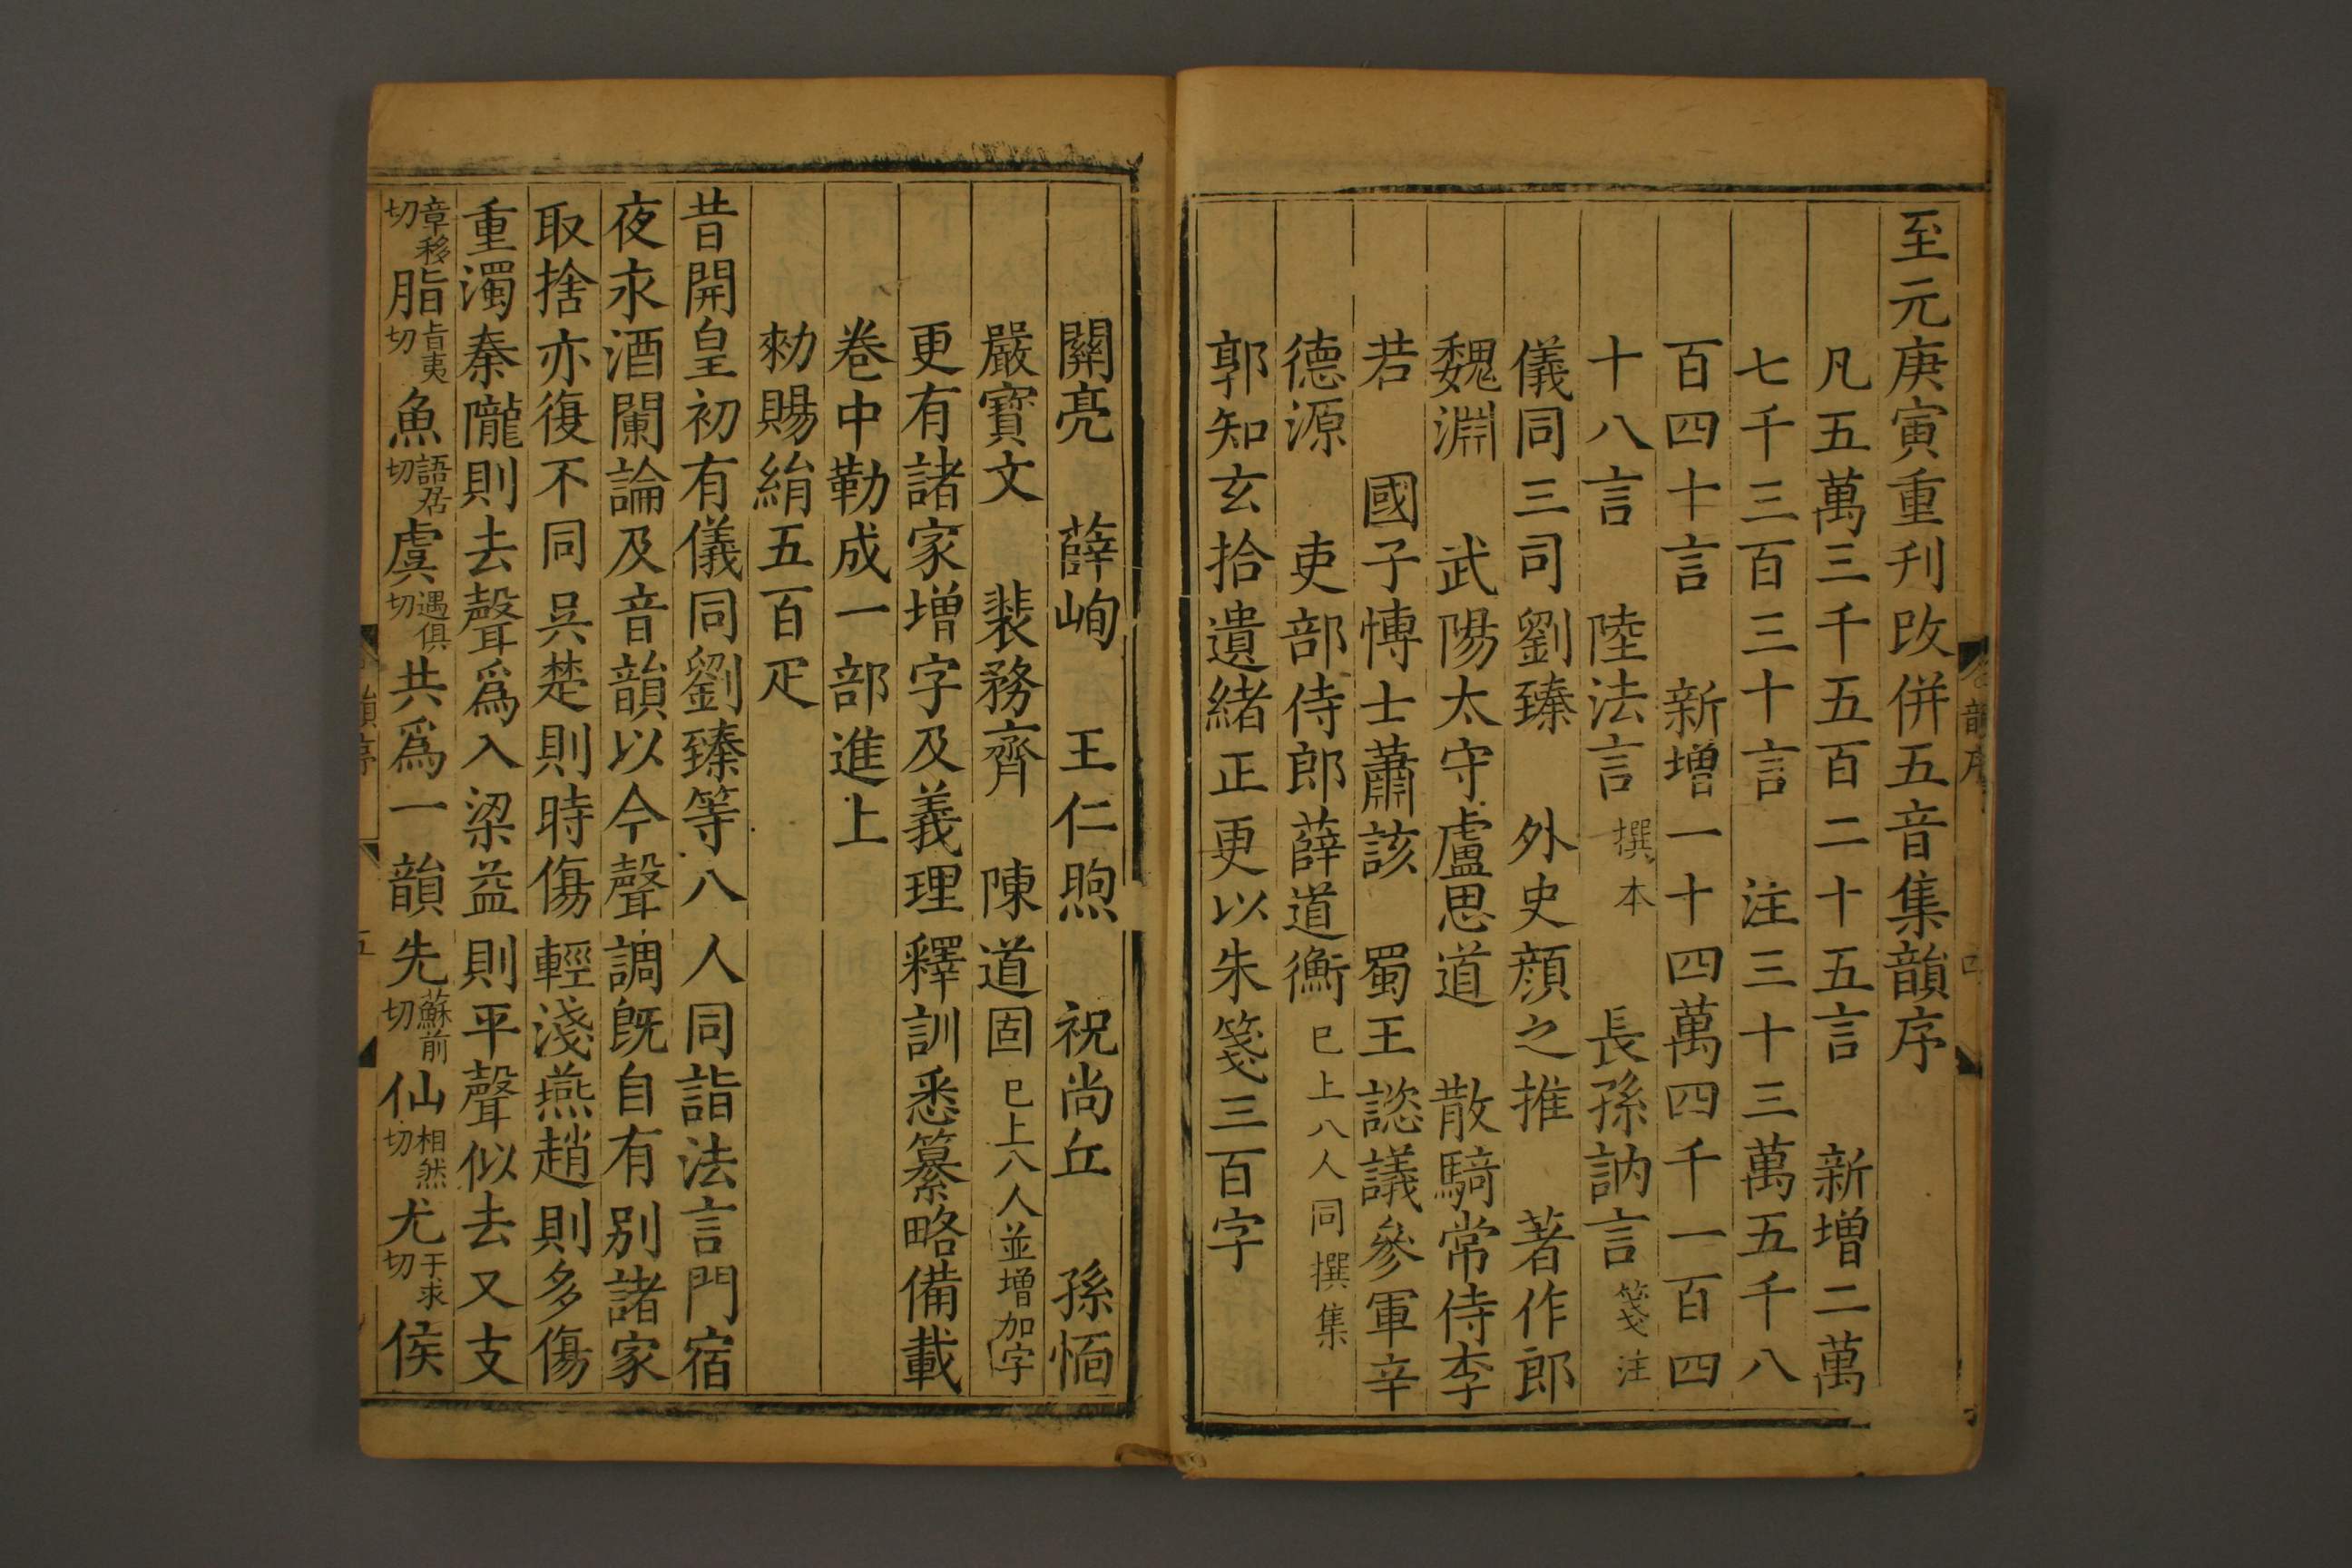 至元庚寅重刊改併五音集韻序
凡五萬三千五百二十五言 新增二萬
七千三百三十言 注三十三萬五千八
百四十言 新增一十四萬四千一百四
十八言 陸法言撰本 長孫訥言箋注
儀同三司劉臻 外史顔之推 著作郎
魏淵 武陽太守盧思道 散騎常侍李
若 國子博士蕭該 蜀王諮議參軍辛
德源 吏部侍郎薛道衡已上八人同撰集
郭知玄拾遺緒正更以朱箋三百字
關亮 薛峋 王仁煦 祝尚丘 孫愐
嚴寶文 裴務齊 陳道固已上八人並增加字
更有諸家增字及義理釋訓悉纂略備載
卷中勒成一部進上
勑賜絹五百疋
昔開皇初有儀同劉臻等八人同詣法言門宿
夜永酒闌論及音韻以今聲調既自有别諸家
取捨亦復不同吳楚則時傷輕淺燕趙則多傷
重濁秦隴則去聲爲入梁益則平聲似去又支
章移切脂旨夷切魚語居切虞遇俱切共爲一韻先蘇前切仙相然切尤于求切侯